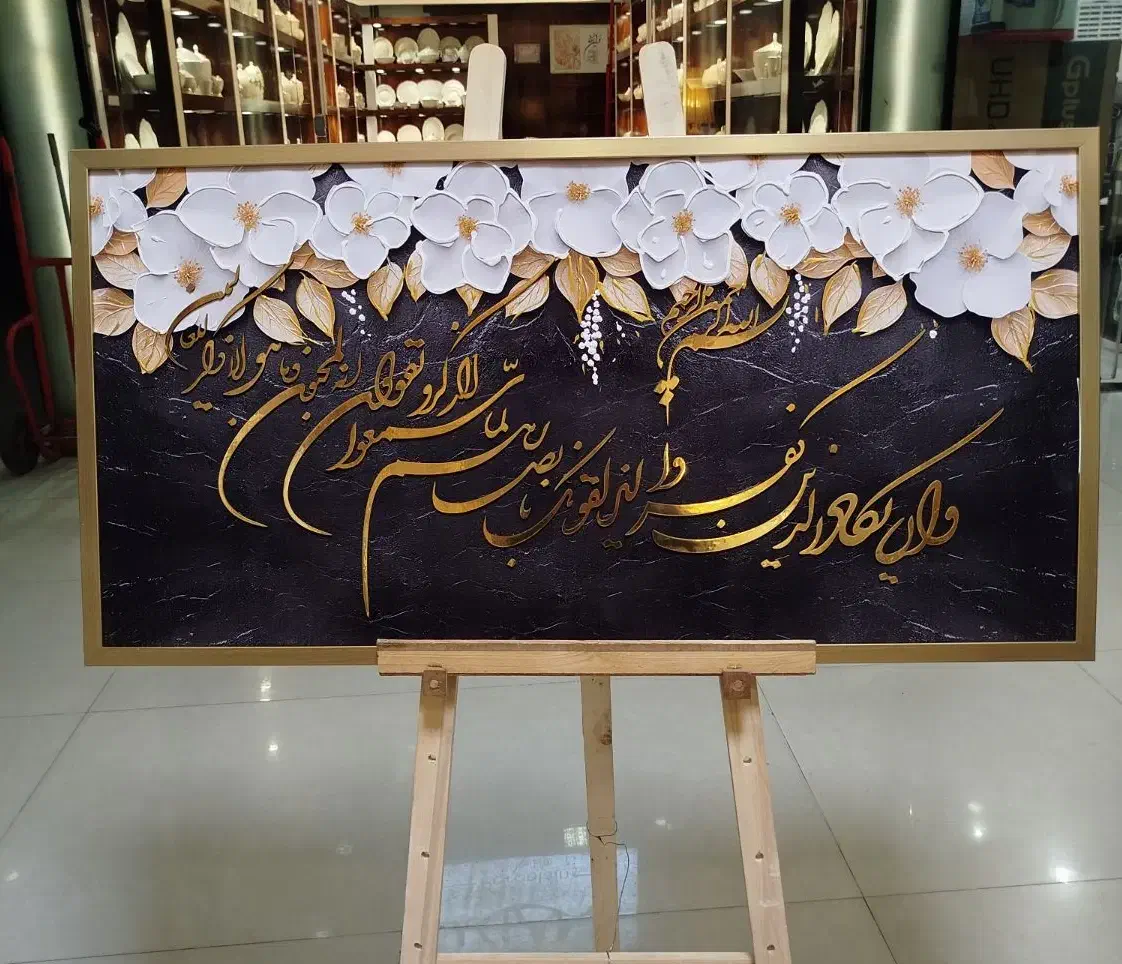 بسم الله الرحمن الرحیم
وان یکاد الذین کفروا لیزلقونک بابصارهم لما سمعوا الذکر و یقولون انه لمجنون و ما هو الا ذکر للعالمین
UHD
Gplus